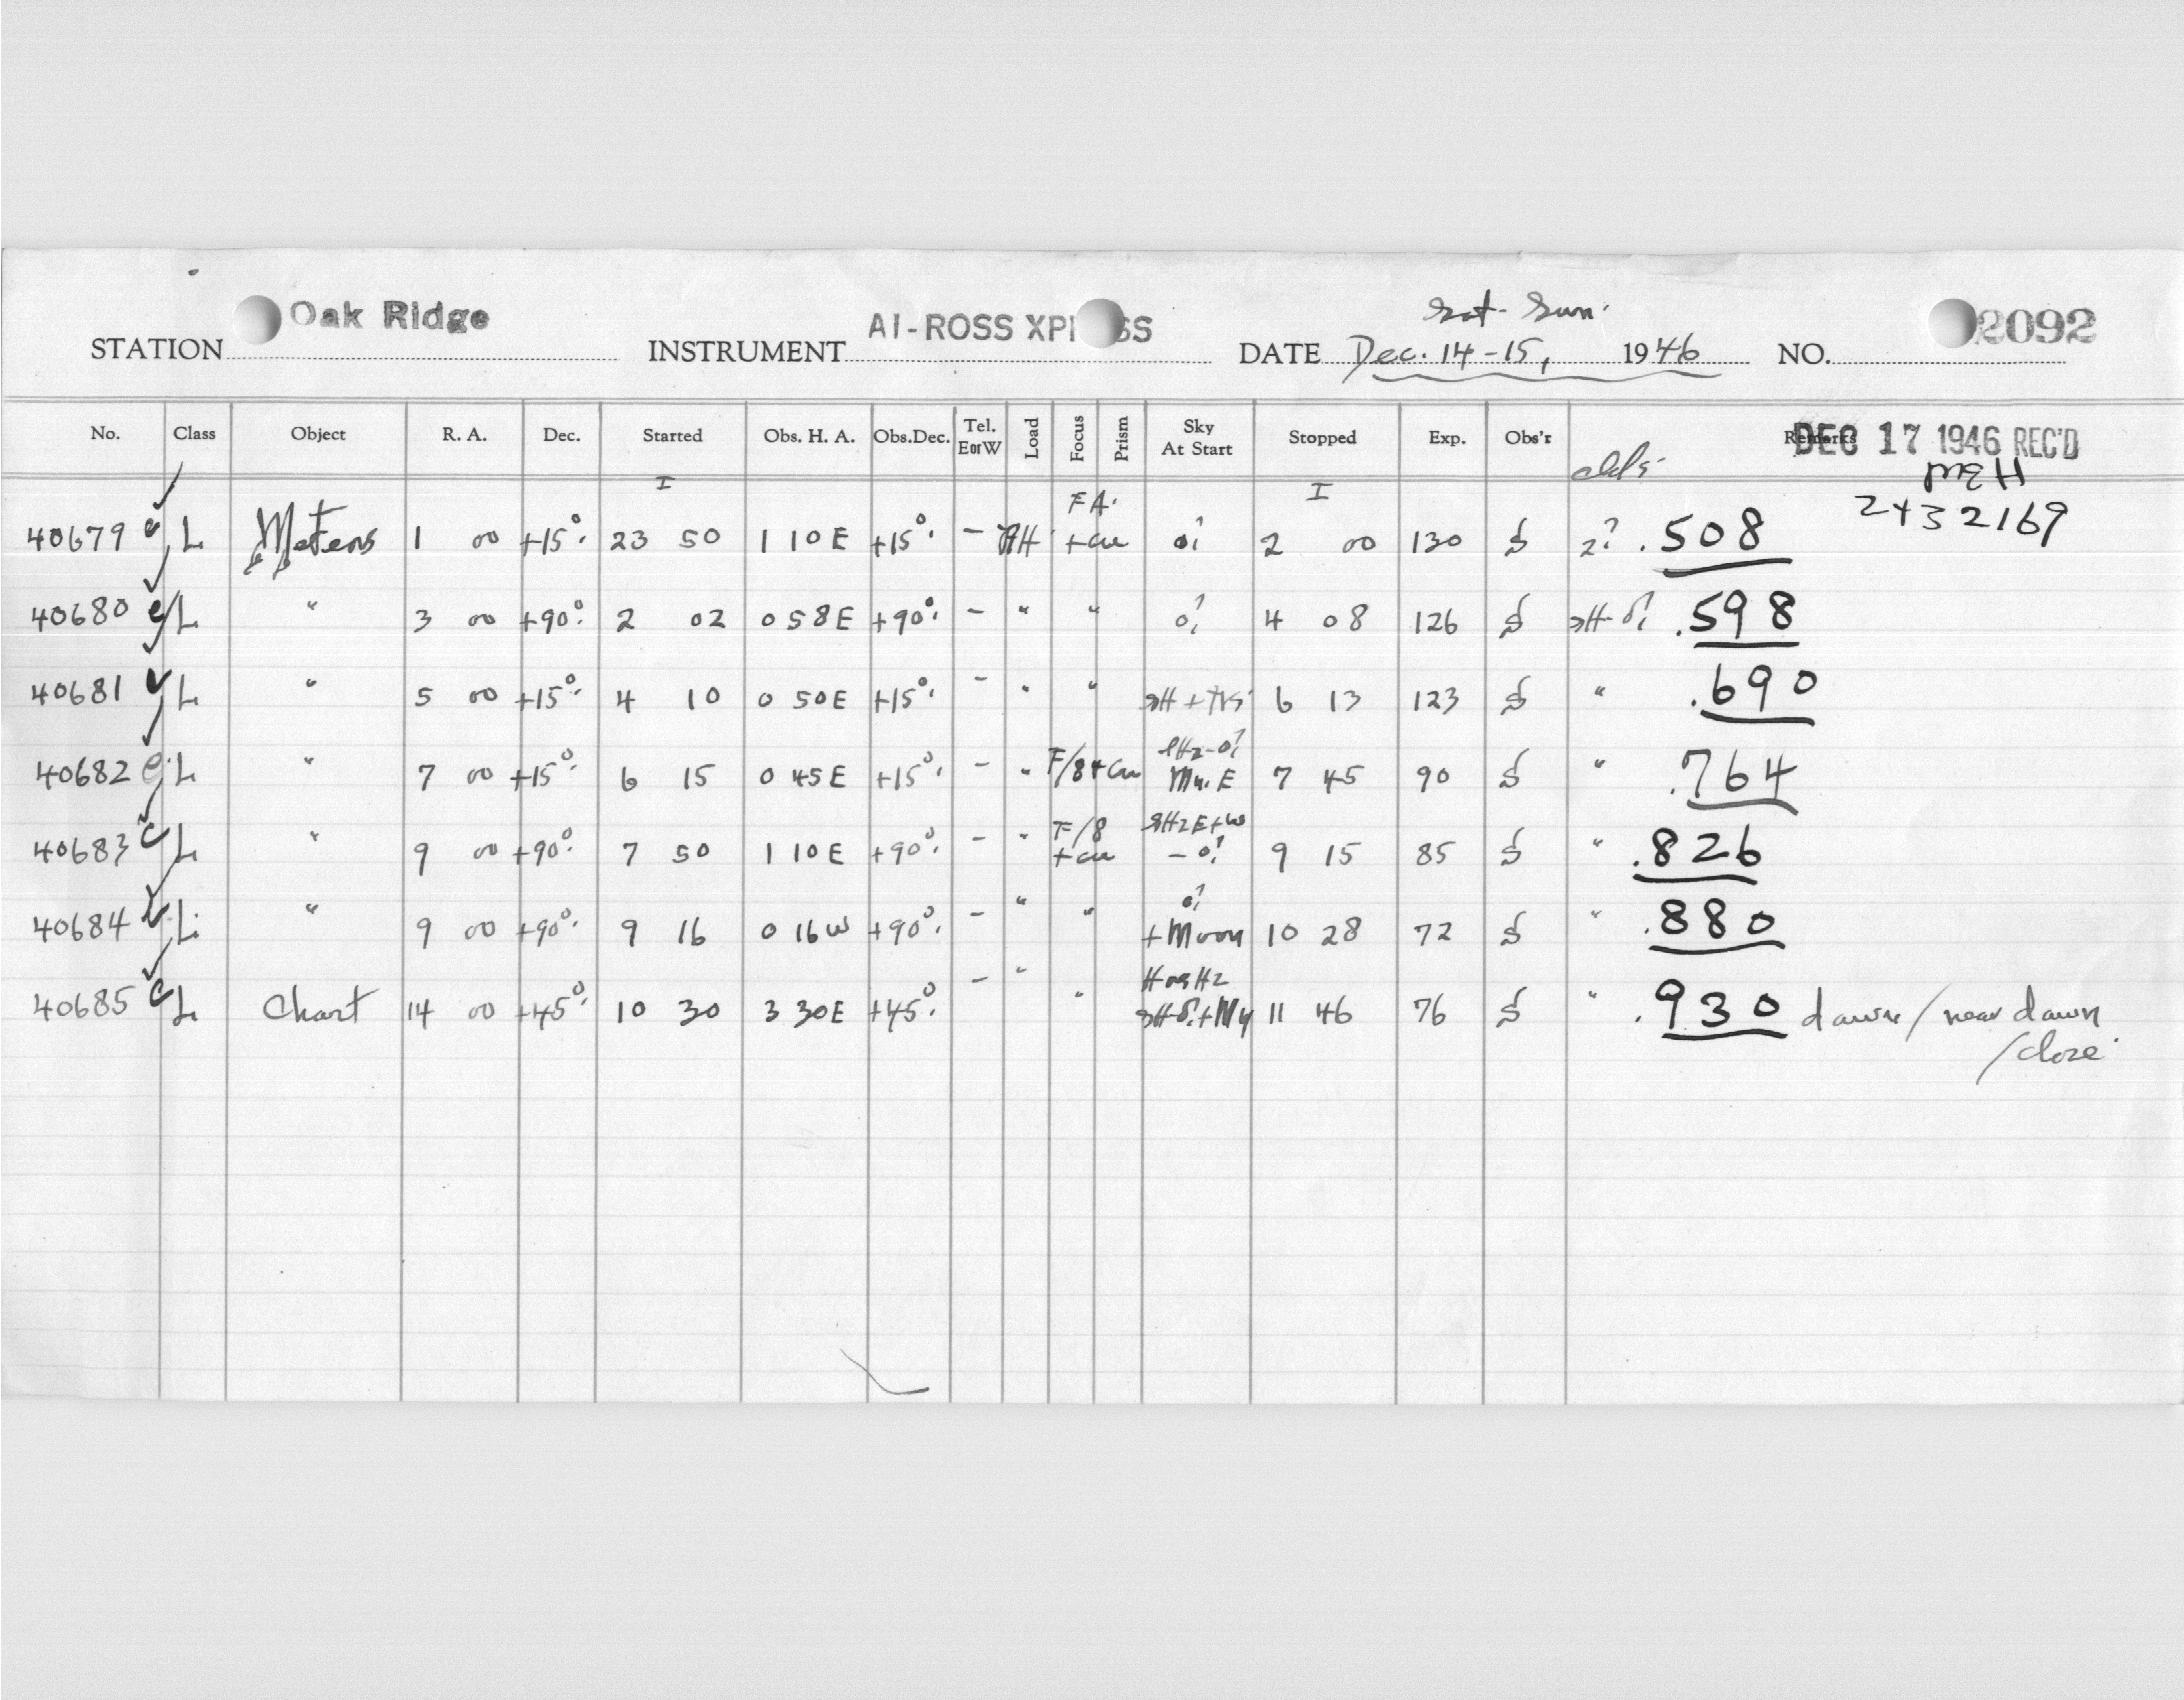 Sat - Sun.
STATION Oak Ridge INSTRUMENT AI-ROSS XP SS DATE Dec. 14-15, 1946 NO. 2092
No. Class Object R. A. Dec. Started Obs. H. A. Obs. Dec. Tel. E or W Load Focus Prism Sky At Start Stopped Exp. Obs'r Remarks
DEC 17 1946 REC'D
MEH
2432169
I I FA.
40679 L Meteors 1 00 +15° 23 50 1 10 E +15° - +cu 2 00 130 .508
40680 L " 3 00 +90° 2 02 0 58 E +90° - " " 4 08 126 .598
40681 L " 5 00 +15° 4 10 0 50 E +15° - " " 6 13 123 " .690
40682 L " 7 00 +15° 6 15 0 45 E +15° - " F/8+cu 7 45 90 " .764
40683 L " 9 00 +90° 7 50 1 10 E +90° - " F/8 +cu 9 15 85 " .826
40684 L " 9 00 +90° 9 16 0 16 W +90° - " " +Moon 10 28 72 " .880
40685 L Chart 14 00 +45° 10 30 3 30 E +45° - " " 11 46 76 " .930 dawn / near dawn
/close